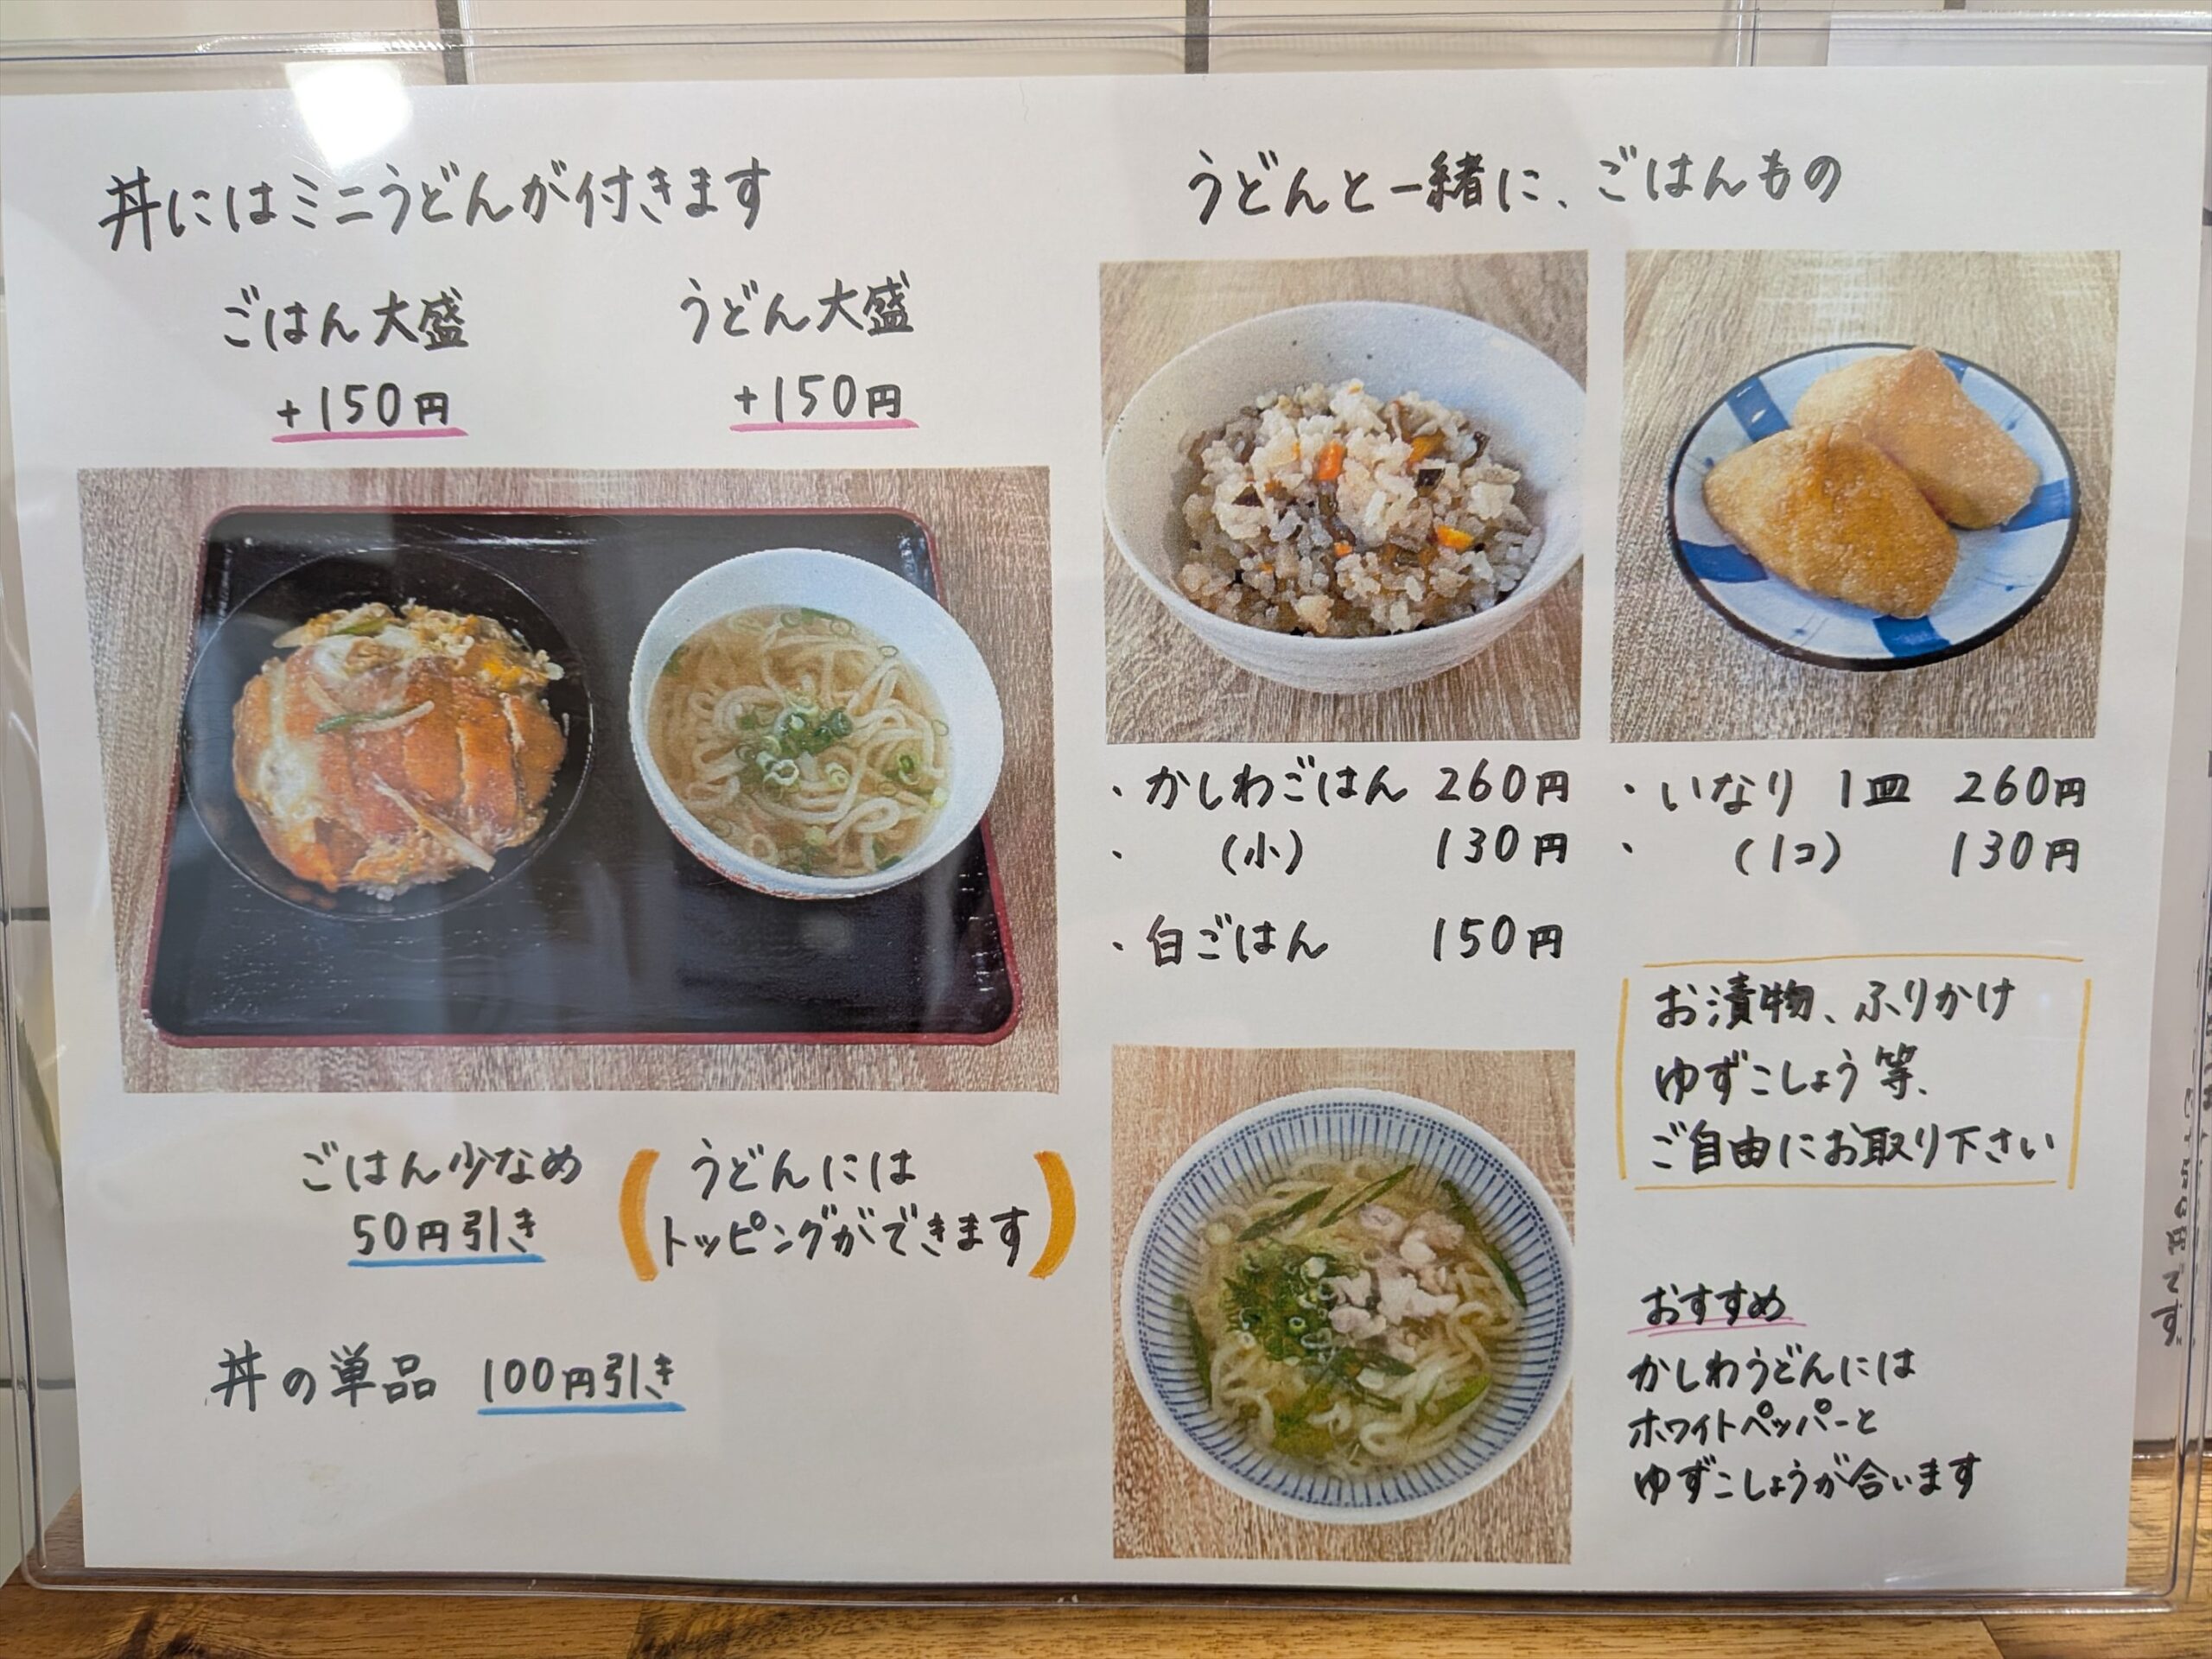 丼にはミニうどんが付きます
ごはん大盛
+150円
うどん大盛
+150円
ごはん少なめ
50円引き
うどんには
トッピングができます
丼の単品 100円引き
うどんと一緒に、ごはんもの
・かしわごはん 260円
・ (小) 130円
・白ごはん 150円
・いなり 1皿 260円
・ (1コ) 130円
お漬物、ふりかけ
ゆずこしょう等、
ご自由にお取り下さい
おすすめ
かしわうどんには
ホワイトペッパーと
ゆずこしょうが合います